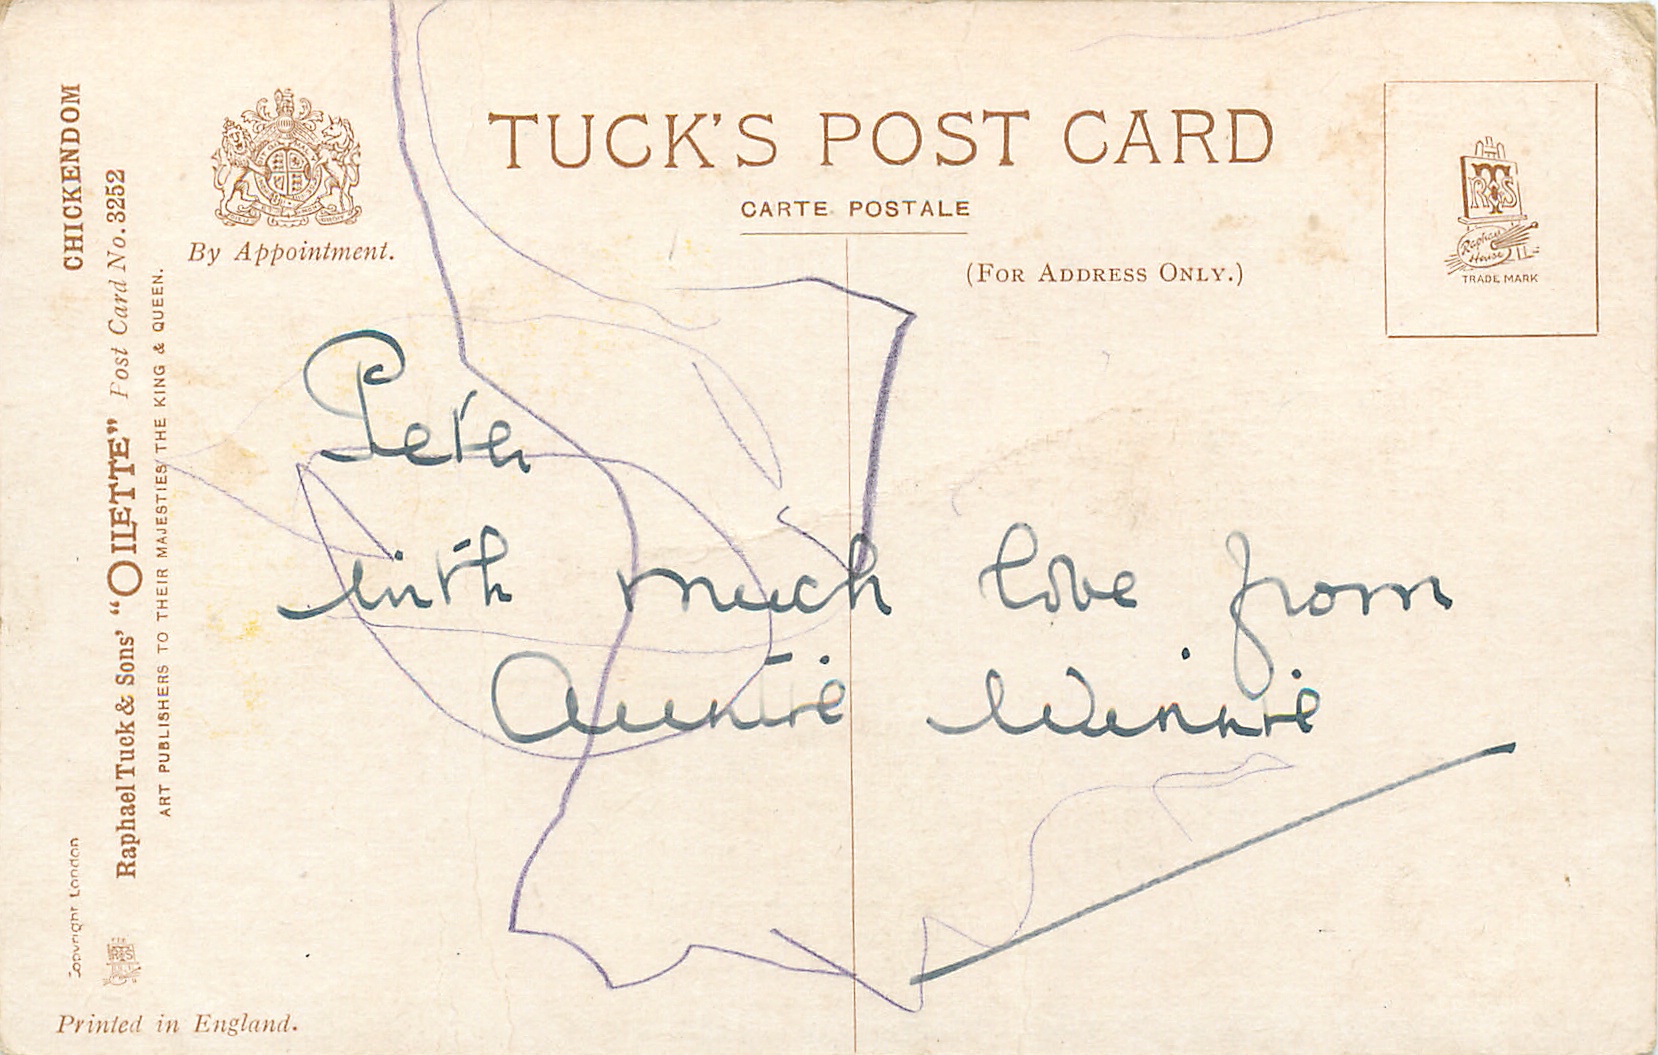 CHICKENDOM
Raphael Tuck & Sons' "OILETTE" Post Card No. 3252
ART PUBLISHERS TO THEIR MAJESTIES THE KING & QUEEN.
Copyright London
By Appointment.
TUCK'S POST CARD
CARTE POSTALE
(FOR ADDRESS ONLY.)
RTS
Raphael
House
TRADE MARK
Peter
with much love from
Auntie Winnie
Printed in England.